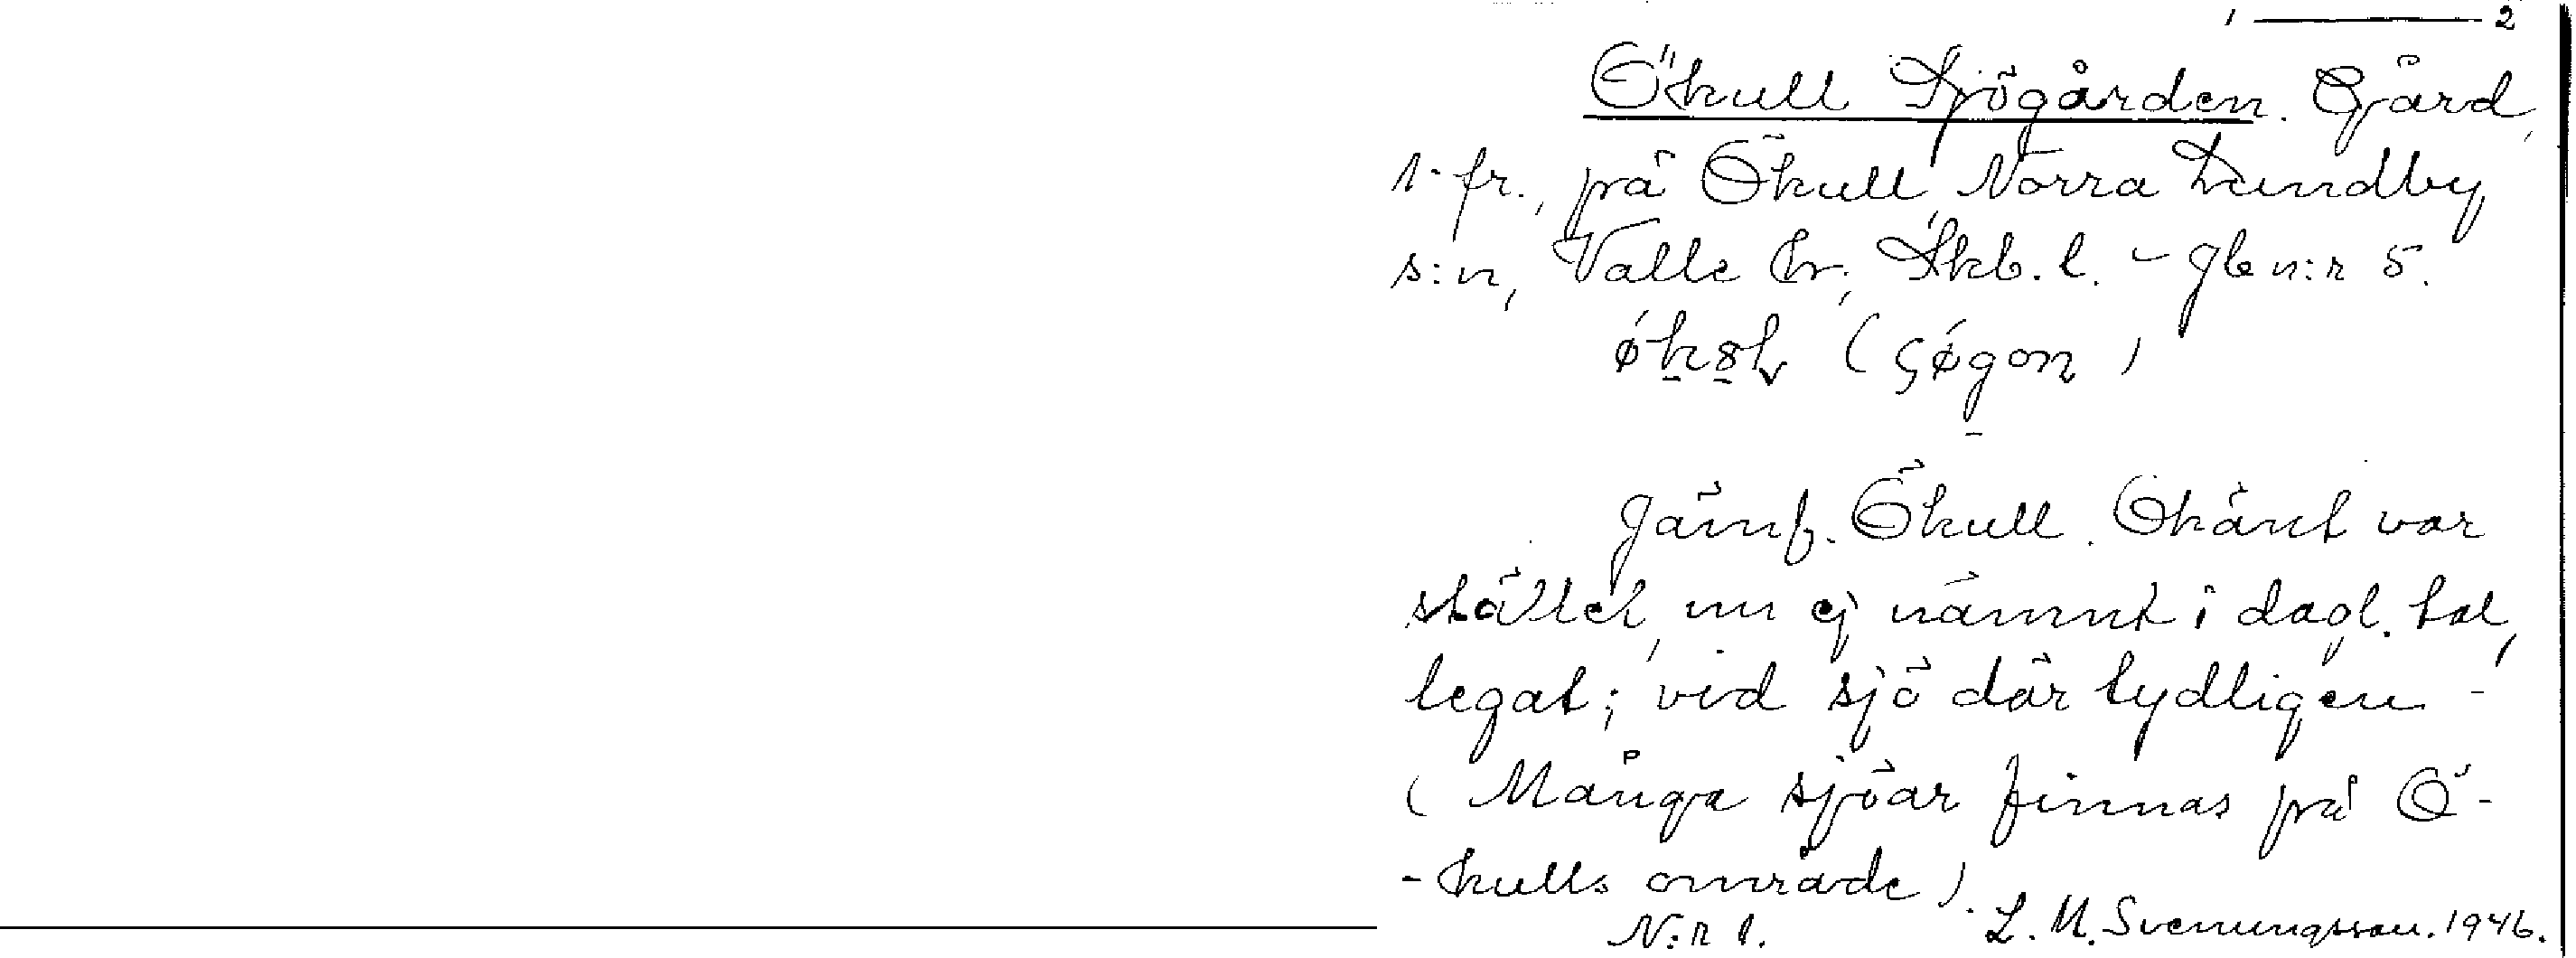 1 —— 2
Ökull Sjögården. Gård,
1. fr., på Ökull, Norra Lundby
s:n, Valle hr., Skb. l. - Jb n:r 5.
(
)
Jämf. Ökull. Okänt var
stället, nu ej nämnt i dagl. tal,
legat; vid sjö där tydligen -
( Många sjöar finnas på Ö-
-kulls område ).
N:r 1. L. M. Svenungsson. 1946.